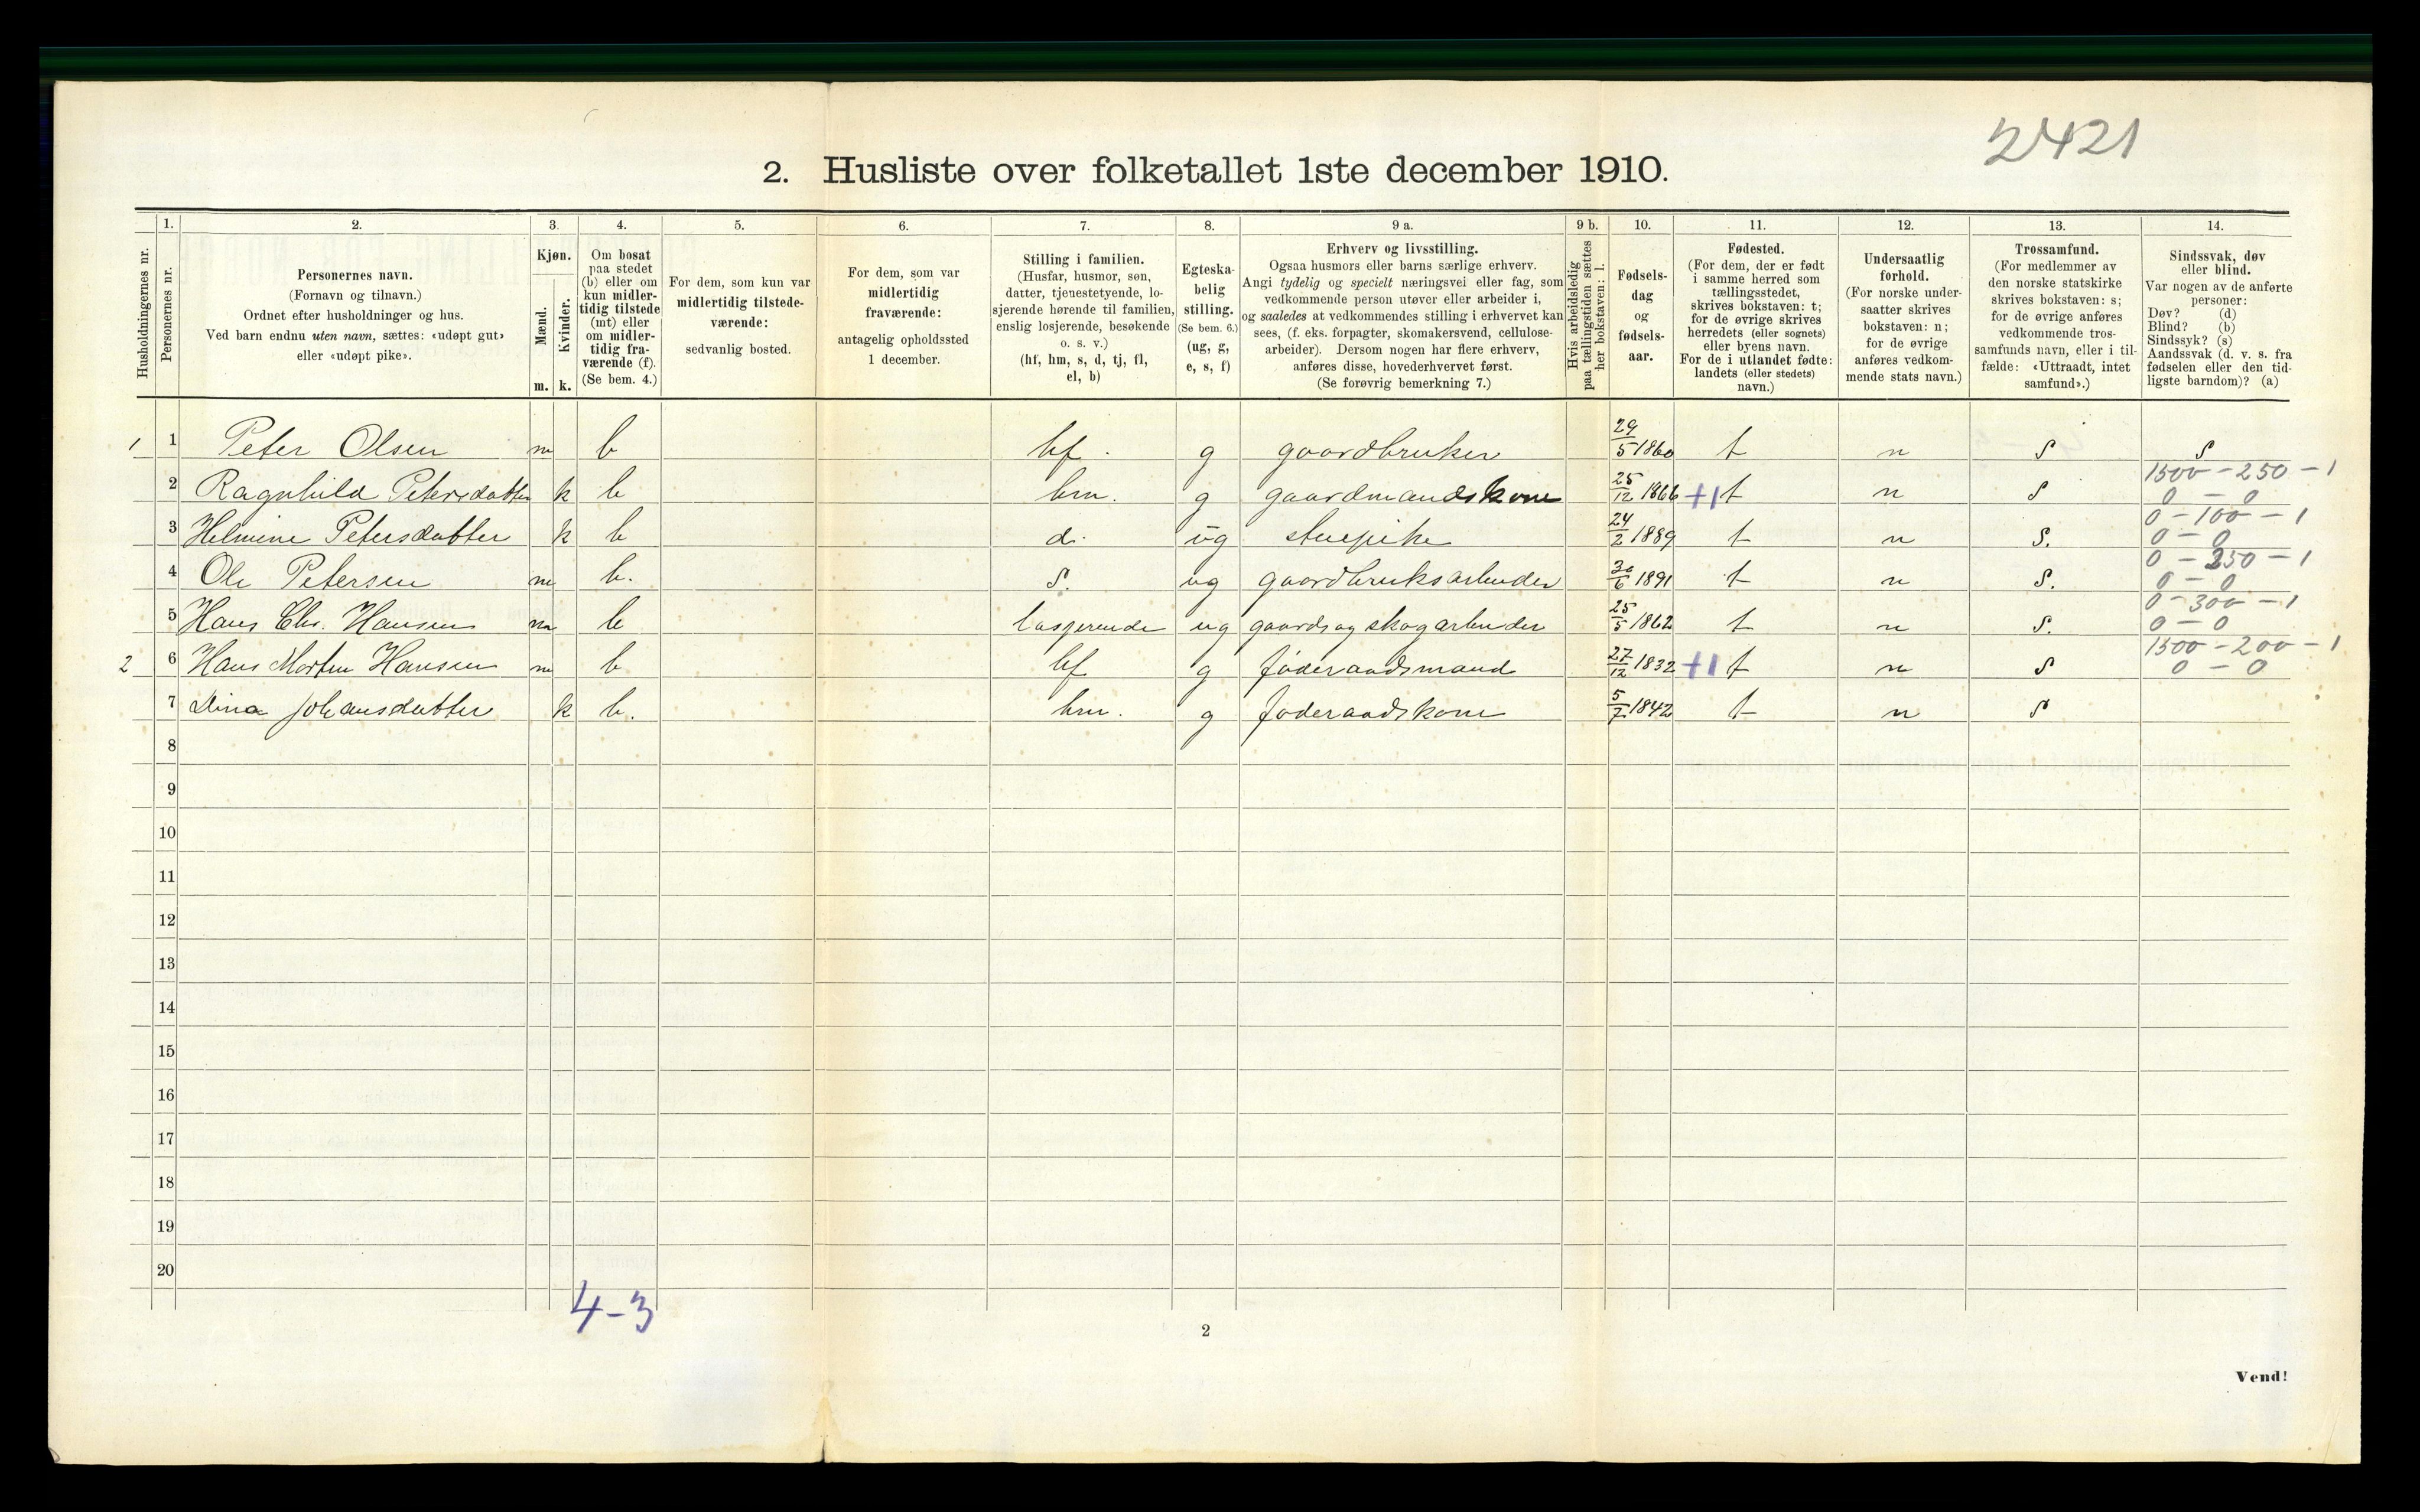 2421
2. Husliste over folketallet 1ste december 1910.
Husholdningernes nr.
1.
Personernes nr.
2.
Personernes navn.
(Fornavn og tilnavn.)
Ordnet efter husholdninger og hus.
Ved barn endnu uten navn, sættes: «udøpt gut»
eller «udøpt pike».
3.
Kjøn.
Mænd.
Kvinder.
m. k.
4.
Om bosat
paa stedet
(b) eller om
kun midler-
tidig tilstede
(mt) eller
om midler-
tidig fra-
værende (f).
(Se bem. 4.)
5.
For dem, som kun var
midlertidig tilstede-
værende:
sedvanlig bosted.
6.
For dem, som var
midlertidig
fraværende:
antagelig opholdssted
1 december.
7.
Stilling i familien.
(Husfar, husmor, søn,
datter, tjenestetyende, lo-
sjerende hørende til familien,
enslig losjerende, besøkende
o. s. v.)
(hf, hm, s, d, tj, fl,
el, b)
8.
Egteska-
belig
stilling.
(Se bem. 6.)
(ug, g,
e, s, f)
9 a.
Erhverv og livsstilling.
Ogsaa husmors eller barns særlige erhverv.
Angi tydelig og specielt næringsvei eller fag, som
vedkommende person utøver eller arbeider i,
og saaledes at vedkommendes stilling i erhvervet kan
sees, (f. eks. forpagter, skomakersvend, cellulose-
arbeider). Dersom nogen har flere erhverv,
anføres disse, hovederhvervet først.
(Se forøvrig bemerkning 7.)
9 b.
Hvis arbeidsledig
paa tællingstiden sættes
her bokstaven: l.
10.
Fødsels-
dag
og
fødsels-
aar.
11.
Fødested.
(For dem, der er født
i samme herred som
tællingsstedet,
skrives bokstaven: t;
for de øvrige skrives
herredets (eller sognets)
eller byens navn.
For de i utlandet fødte:
landets (eller stedets)
navn.)
12.
Undersaatlig
forhold.
(For norske under-
saatter skrives
bokstaven: n;
for de øvrige
anføres vedkom-
mende stats navn.)
13.
Trossamfund.
(For medlemmer av
den norske statskirke
skrives bokstaven: s;
for de øvrige anføres
vedkommende tros-
samfunds navn, eller i til-
fælde: «Uttraadt, intet
samfund».)
14.
Sindssvak, døv
eller blind.
Var nogen av de anførte
personer:
Døv? (d)
Blind? (b)
Sindssyk? (s)
Aandssvak (d. v. s. fra
fødselen eller den tid-
ligste barndom)? (a)
1 1 Peter Olsen m b hf. g gaardbruker 29/5 1860 t n s s
1500 - 250 - 1
2 Ragnhild Petersdatter k b hm. g gaardmandskone 25/12 1866 +1 t n s 0 - 0
0 - 100 - 1
3 Helmine Petersdatter k b d. ug stuepike 24/2 1889 t n s. 0 - 0
0 - 350 - 1
4 Ole Petersen m b. s. ug gaardbruksarbeider 30/6 1891 t n s. 0 - 0
0 - 300 - 1
5 Hans Chr. Hansen m b losjerende ug gaards og skogarbeider 25/5 1862 t n s. 0 - 0
1500 - 200 - 1
2 6 Hans Morten Hansen m b hf g føderaadsmand 27/12 1832 +1 t n s 0 - 0
7 Dina Johansdatter k b. hm. g føderaadskone 5/7 1842 t n s
8
9
10
11
12
13
14
15
16
17
18
19
20
4-3
2
Vend!